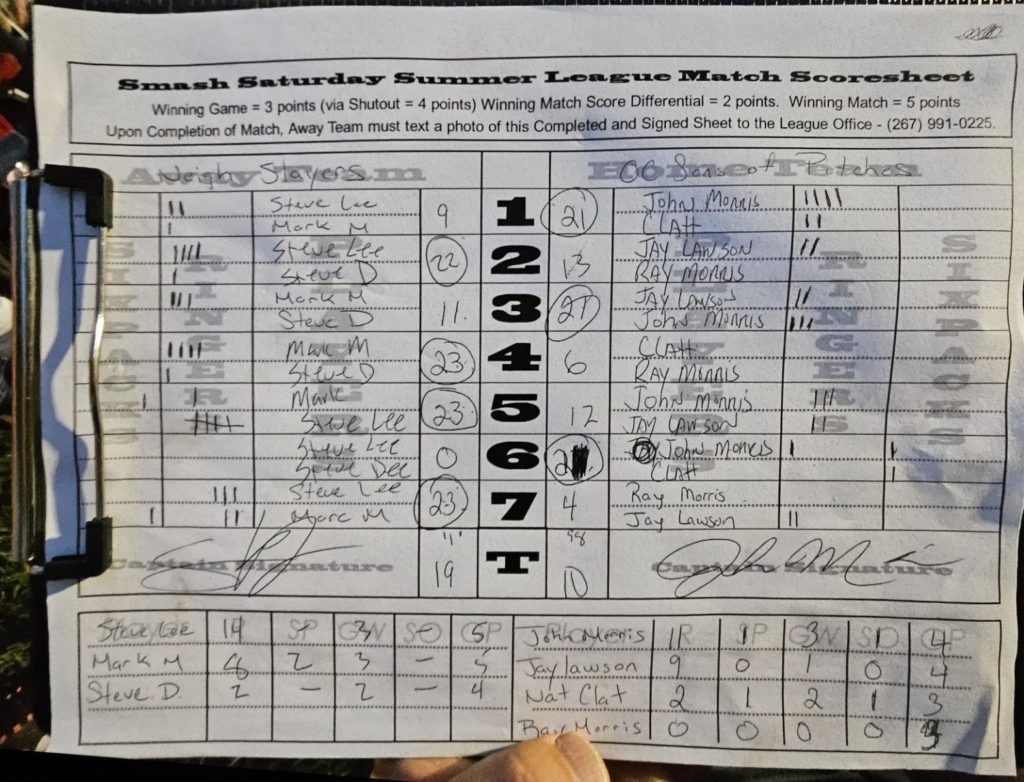 Smash Saturday Summer League Match Scoresheet
Winning Game = 3 points (via Shutout = 4 points) Winning Match Score Differential = 2 points. Winning Match = 5 points
Upon Completion of Match, Away Team must text a photo of this Completed and Signed Sheet to the League Office - (267) 991-0225.
Away Team Neighy Slayers Home Team OG Sons of Potches
SIX PACKS RINGERS PLAYERS PLAYERS RINGERS SIX PACKS
|| Steve Lee 9 1 21 John Morris ||||
| Mark M CLAtt ||
|||| Steve Lee 22 2 13 JAY LAWSON ||
| Steve D RAY MORRIS
||| Mark M 11 3 21 JAY LAWSON ||
Steve D John Morris |||
|||| Mark M 23 4 6 CLAtt
| Steve D RAY MORRIS
| | Mark 23 5 12 John Morris |||
Steve Lee JAY LAWSON ||
Steve Lee 0 6 John Morris | |
Steve Dee CLAtt |
||| Steve Lee 23 7 4 Ray Morris
| || Marc M Jay Lawson ||
111 98
Captain Signature 19 T 10 Captain Signature
PLAYER R SP GW SO GP PLAYER R SP GW SO GP
Steve Lee 14 - 3 - 5 John Morris 11 1 3 1 4
Mark M 8 2 3 - 5 Jay lawson 9 0 1 0 4
Steve D. 2 - 2 - 4 Nat Clat 2 1 2 1 3
Ray Morris 0 0 0 0 3